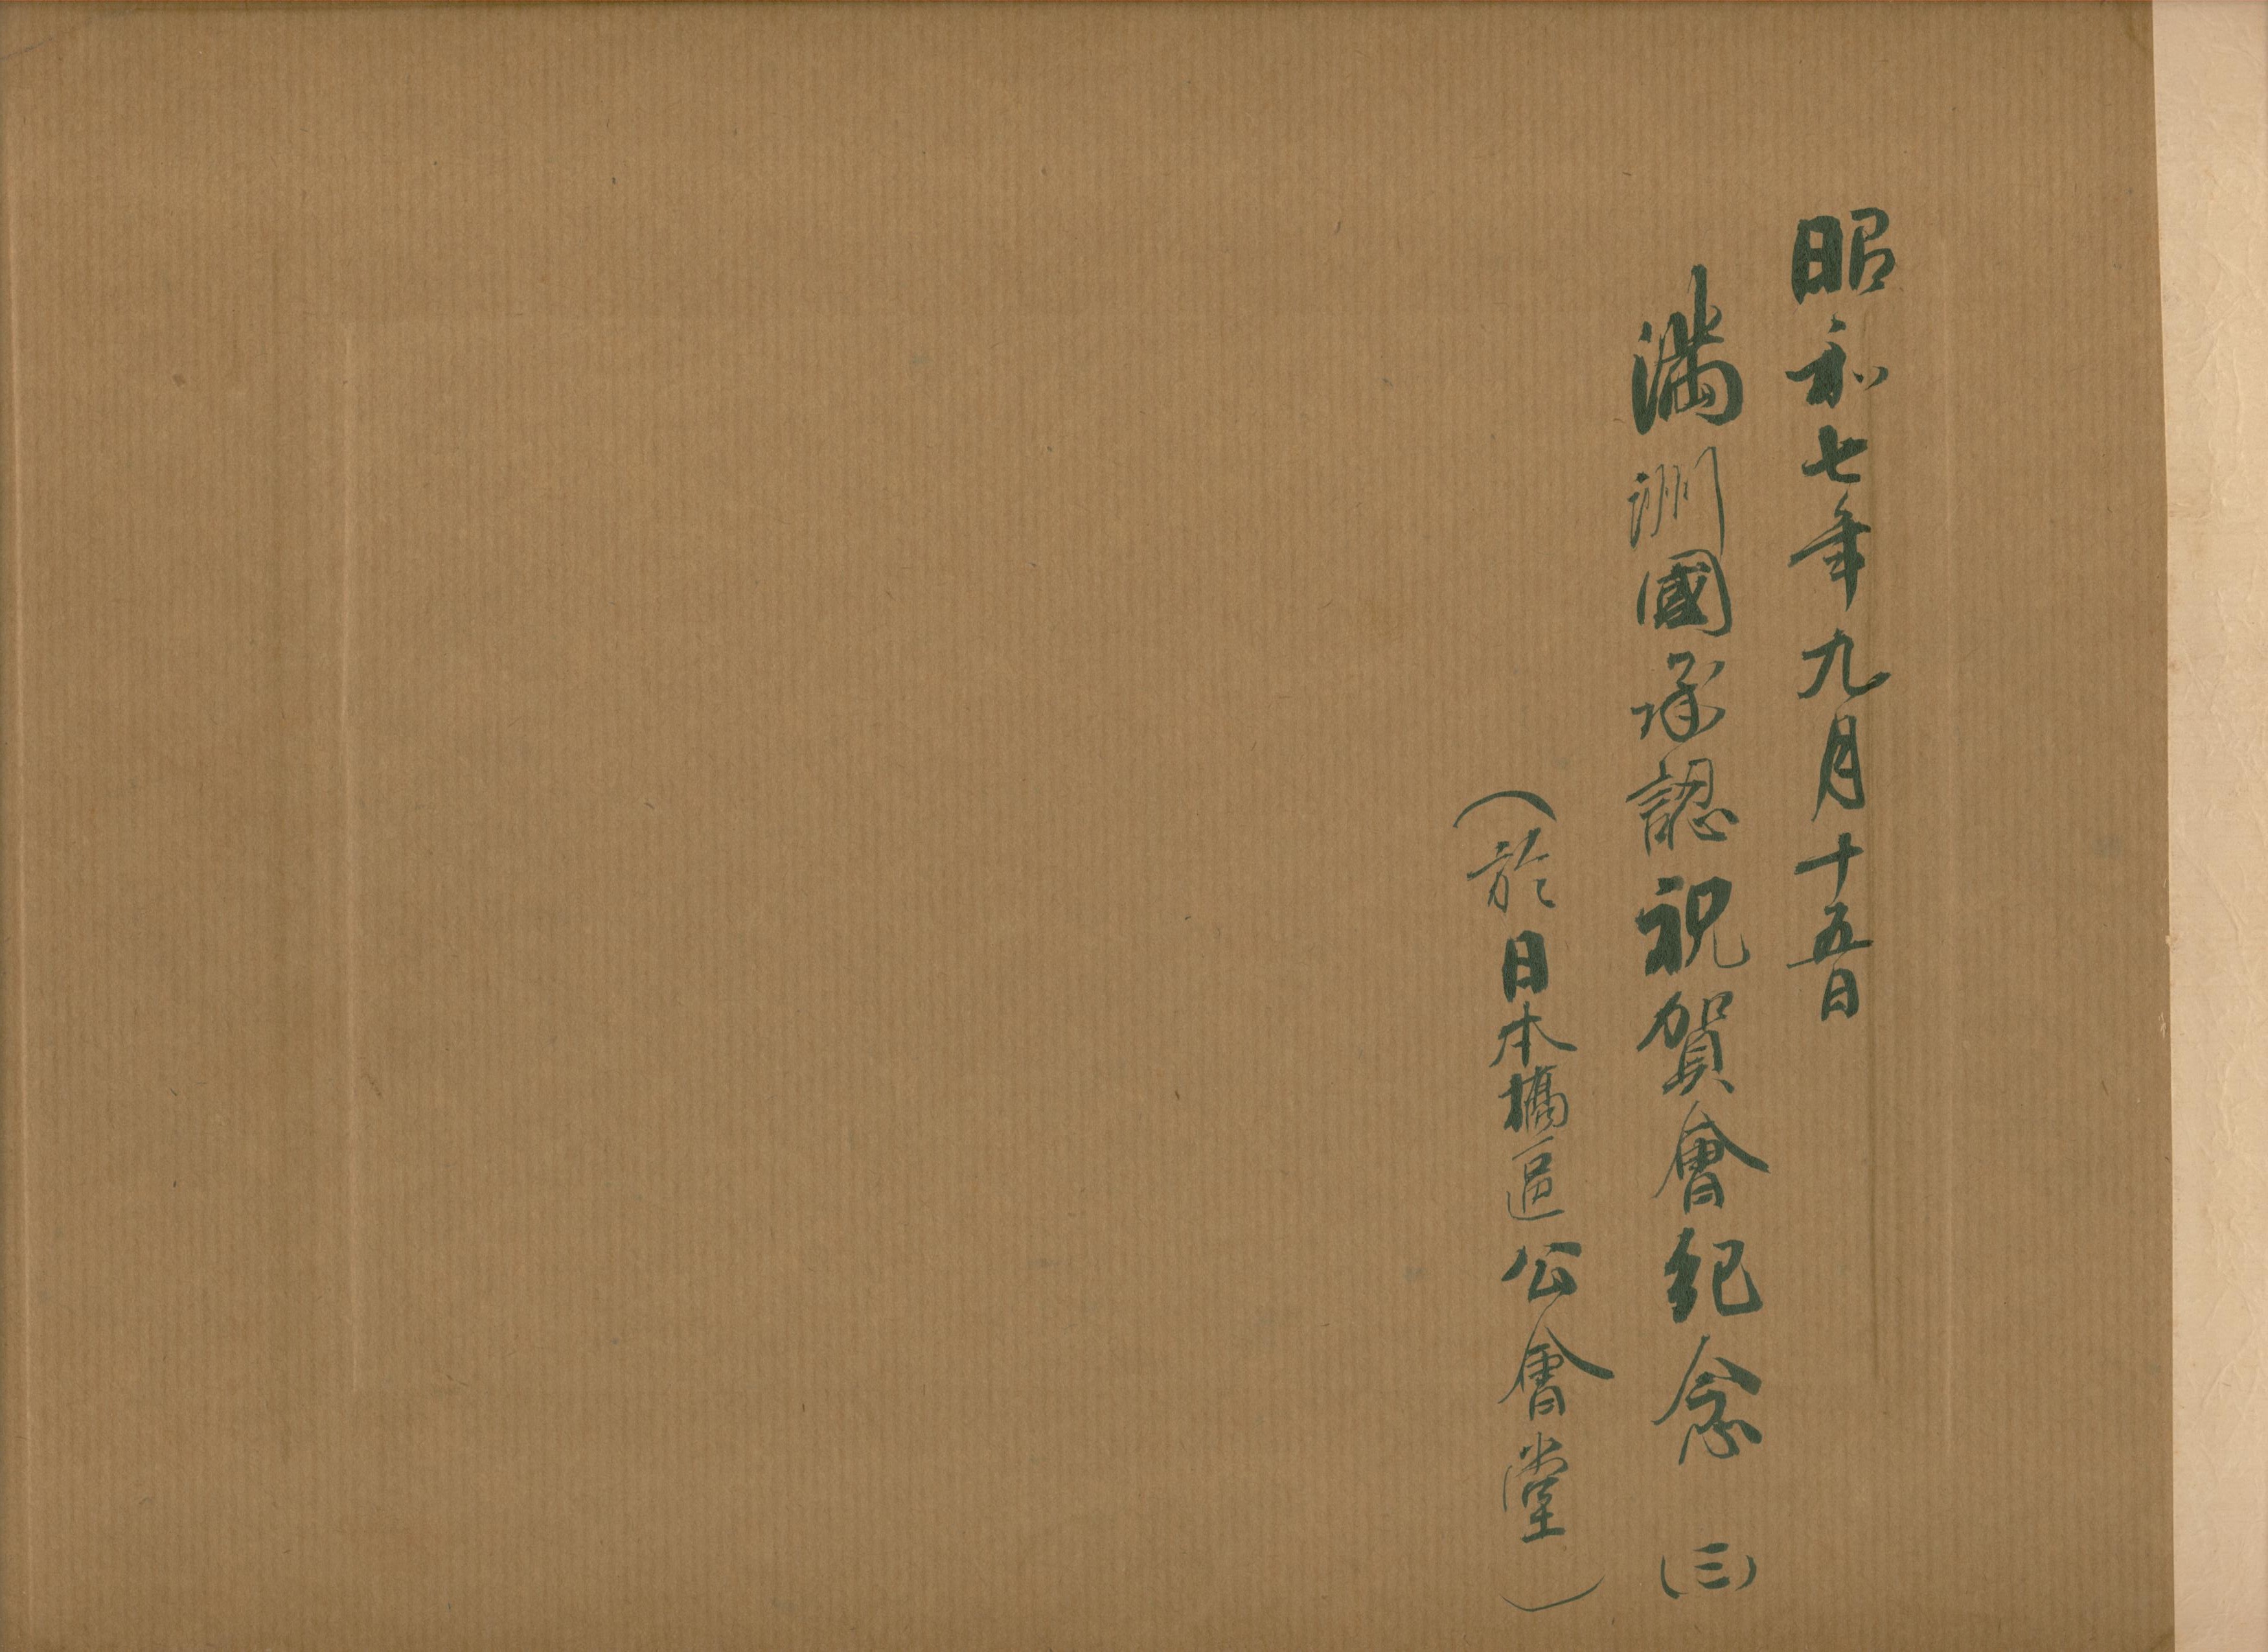 昭和七年九月十五日
満洲國承認祝賀會紀念 (三)
(於日本橋區公會堂)